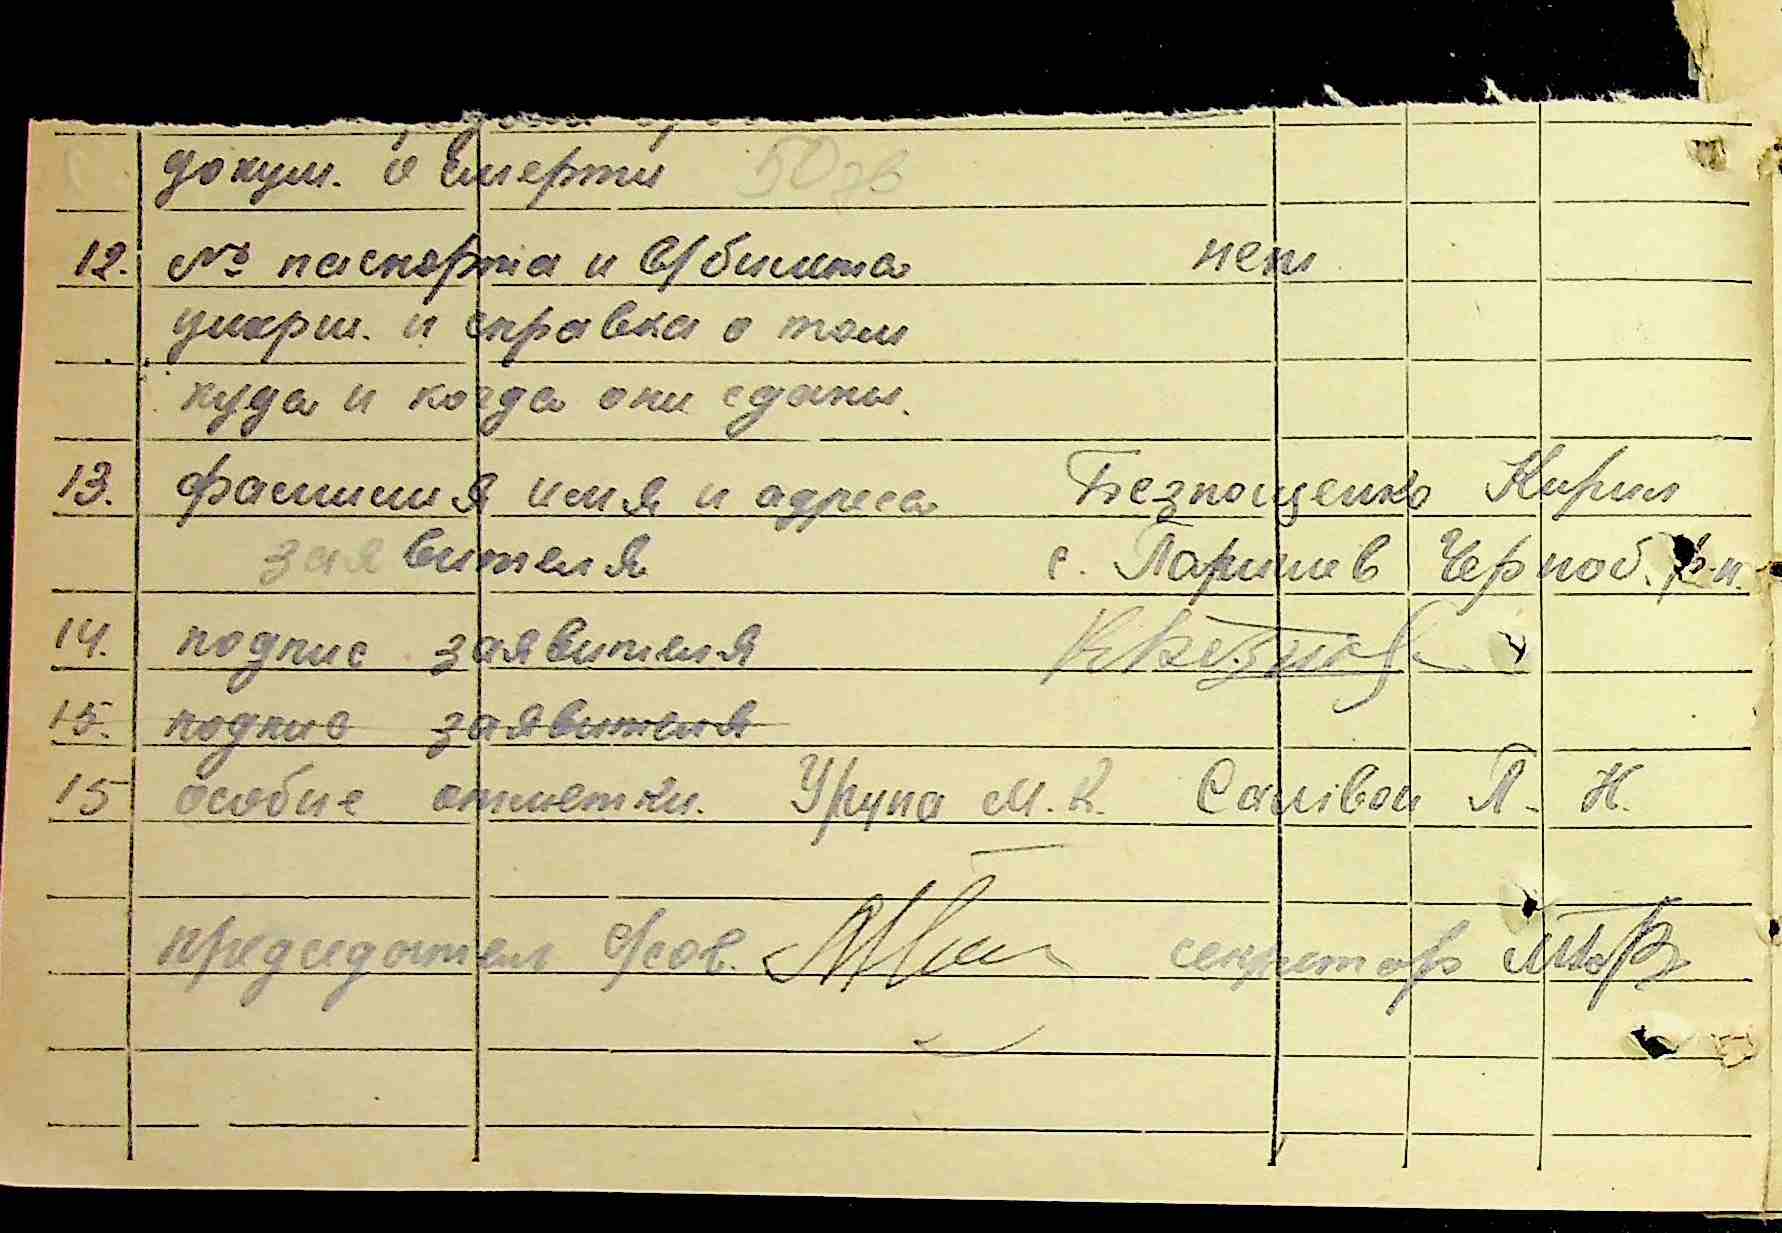 докум. о смерти 50 зв
12. № паспорта и в/билета нет
умерш. и справка о том
куда и когда они сданы.
13. фамилия имя и адреса Безпощенко Кирил
заявителя с. Паришев Черноб. р-н.
14. подпис заявителя
15. подпис заявителя
15 особие отметки. Урупа М. К. Саливон П. Н.
председател с/сов. секретар